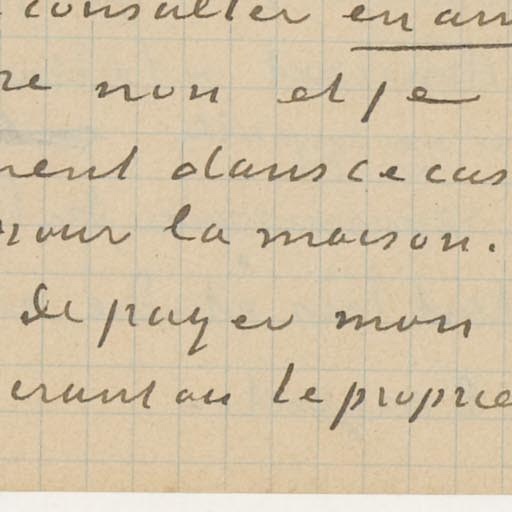 consulter en am
re non et je
ment dans ce cas
pour la maison.
de payer mon
erant ou le proprie